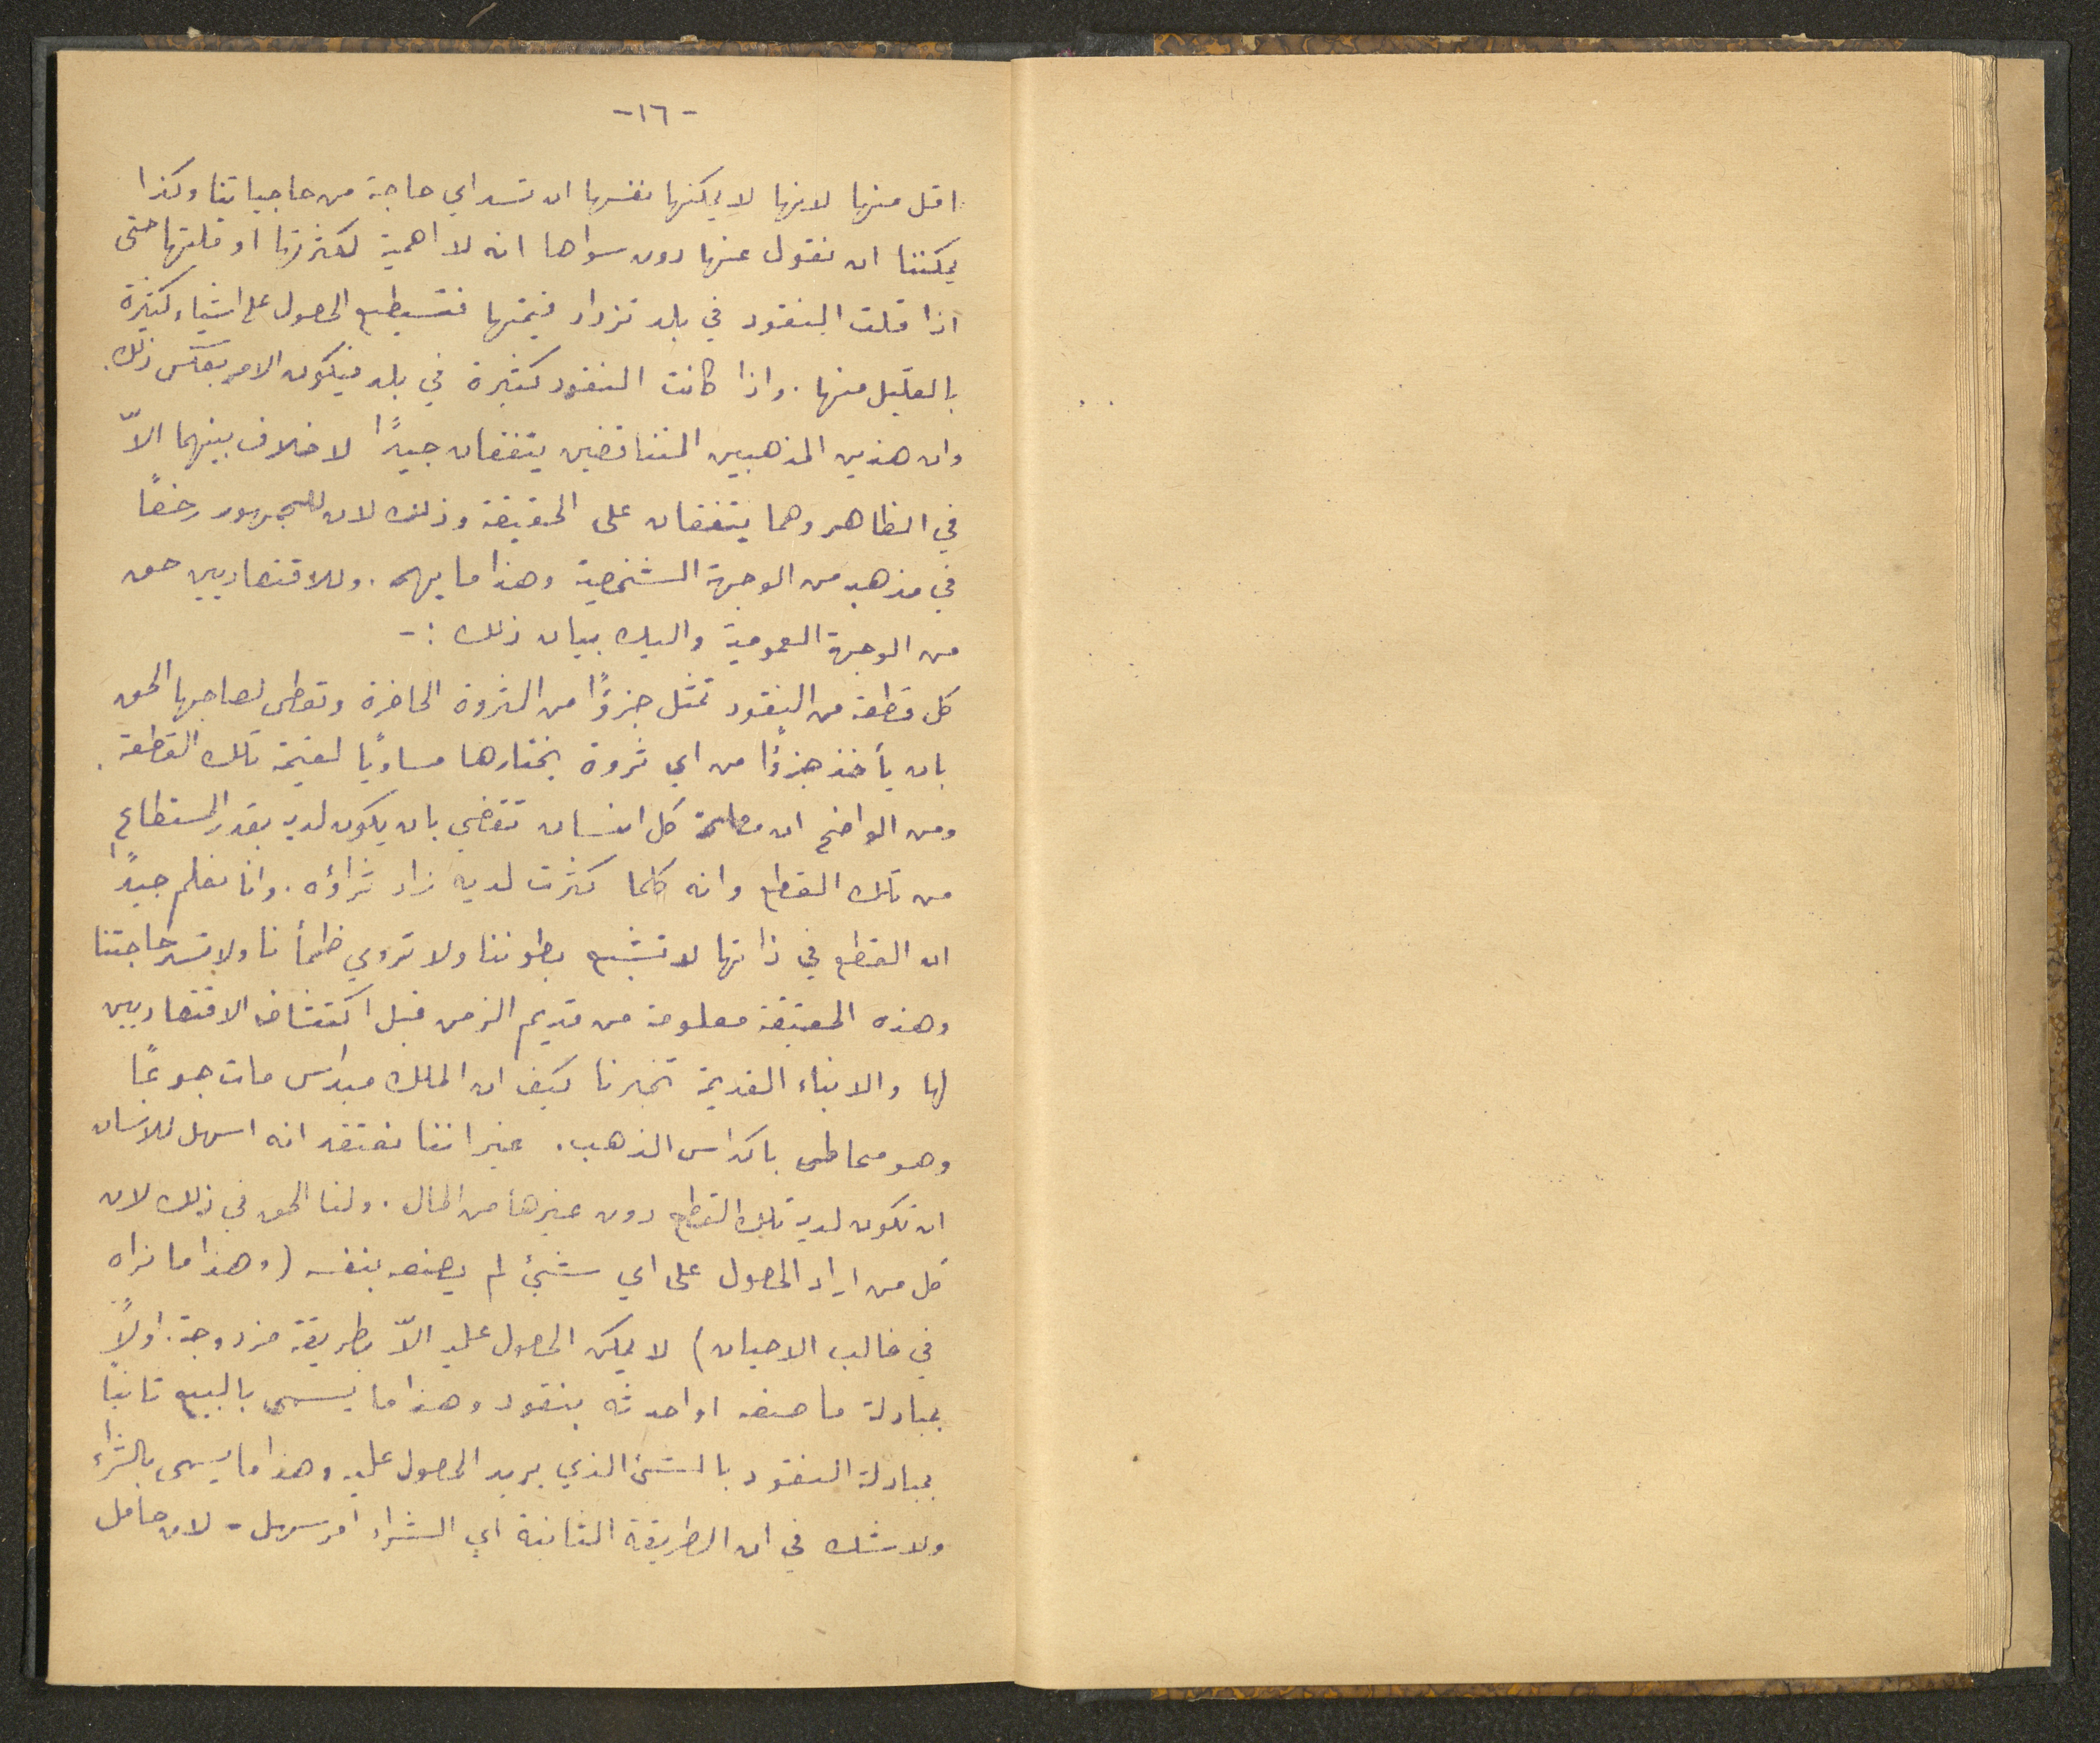 -١٦-
اقل منها لانها لا يمكنها نفسها ان تسد اي حاجة من حاجياتنا وكذا
يمكننا ان نقول عنها دون سواها انه لا اهمية لكثرتها او قلتها حتى
اذا قلت النقود في بلد تزداد قيمتها فنستطيع الحصول على اشياء كثيرة
بالقليل منها. واذا كانت النقود كثيرة في بلد فيكون الامر بعكس ذلك.
وان هذين المذهبين المتناقضين يتفقان جيدًا لا خلاف بينهما الاّ
في الظاهر وهما يتفقان على الحقيقة وذلك لان للجمهور
في مذهبه من الوجهة الشخصية وهذا ما يهمه. وللاقتصاديين حق
من الوجهة العمومية واليك بيان ذلك :-
كل قطعة من النقود تمثل جزؤًا من الثروة الحاضرة وتعطى لصاحبها الحق
بان يأخذ جزؤًا من اي ثروة يختارها مساويًا لقيمة تلك القطعة.
ومن الواضح ان مصلحة كل انسان تقضي بان يكون لديه بقدر المستطاع
من تلك القطع وانه كلما كثرت لديه زاد ثراؤه. وانا نعلم جيدًا
ان القطع في ذاتها لا تشبع بطوننا ولا تروي ظمأنا ولا تسد حاجتنا
وهذه الحقيقة معلومة من قديم الزمن قبل اكتشاف الاقتصاديين
لها والانباء القديمة تخبرنا كيف ان الملك ميداس مات جوعًا
وهو محاط باكداس الذهب. غير اننا نعتقد انه اسهل للانسان
ان تكون لديه تلك القطع دون غيرها من المال. ولنا الحق في ذلك لان
كل من اراد الحصول على اي شئ لم يصنعه بنفسه (وهذا ما نراه
في غالب الاحيان) لا يمكن الحصول عليه الاّ بطريقة مزدوجة. اولاً
بمبادلة ما صنعه او احدثه بنقود وهذا ما يسمى بالبيع ثانيًا
بمبادلة النقود بالشئ الذي يريد الحصول عليه وهذا ما يسمى بالشراء
ولا شك في ان الطريقة الثانية اي الشراء امر سهل - لان حامل